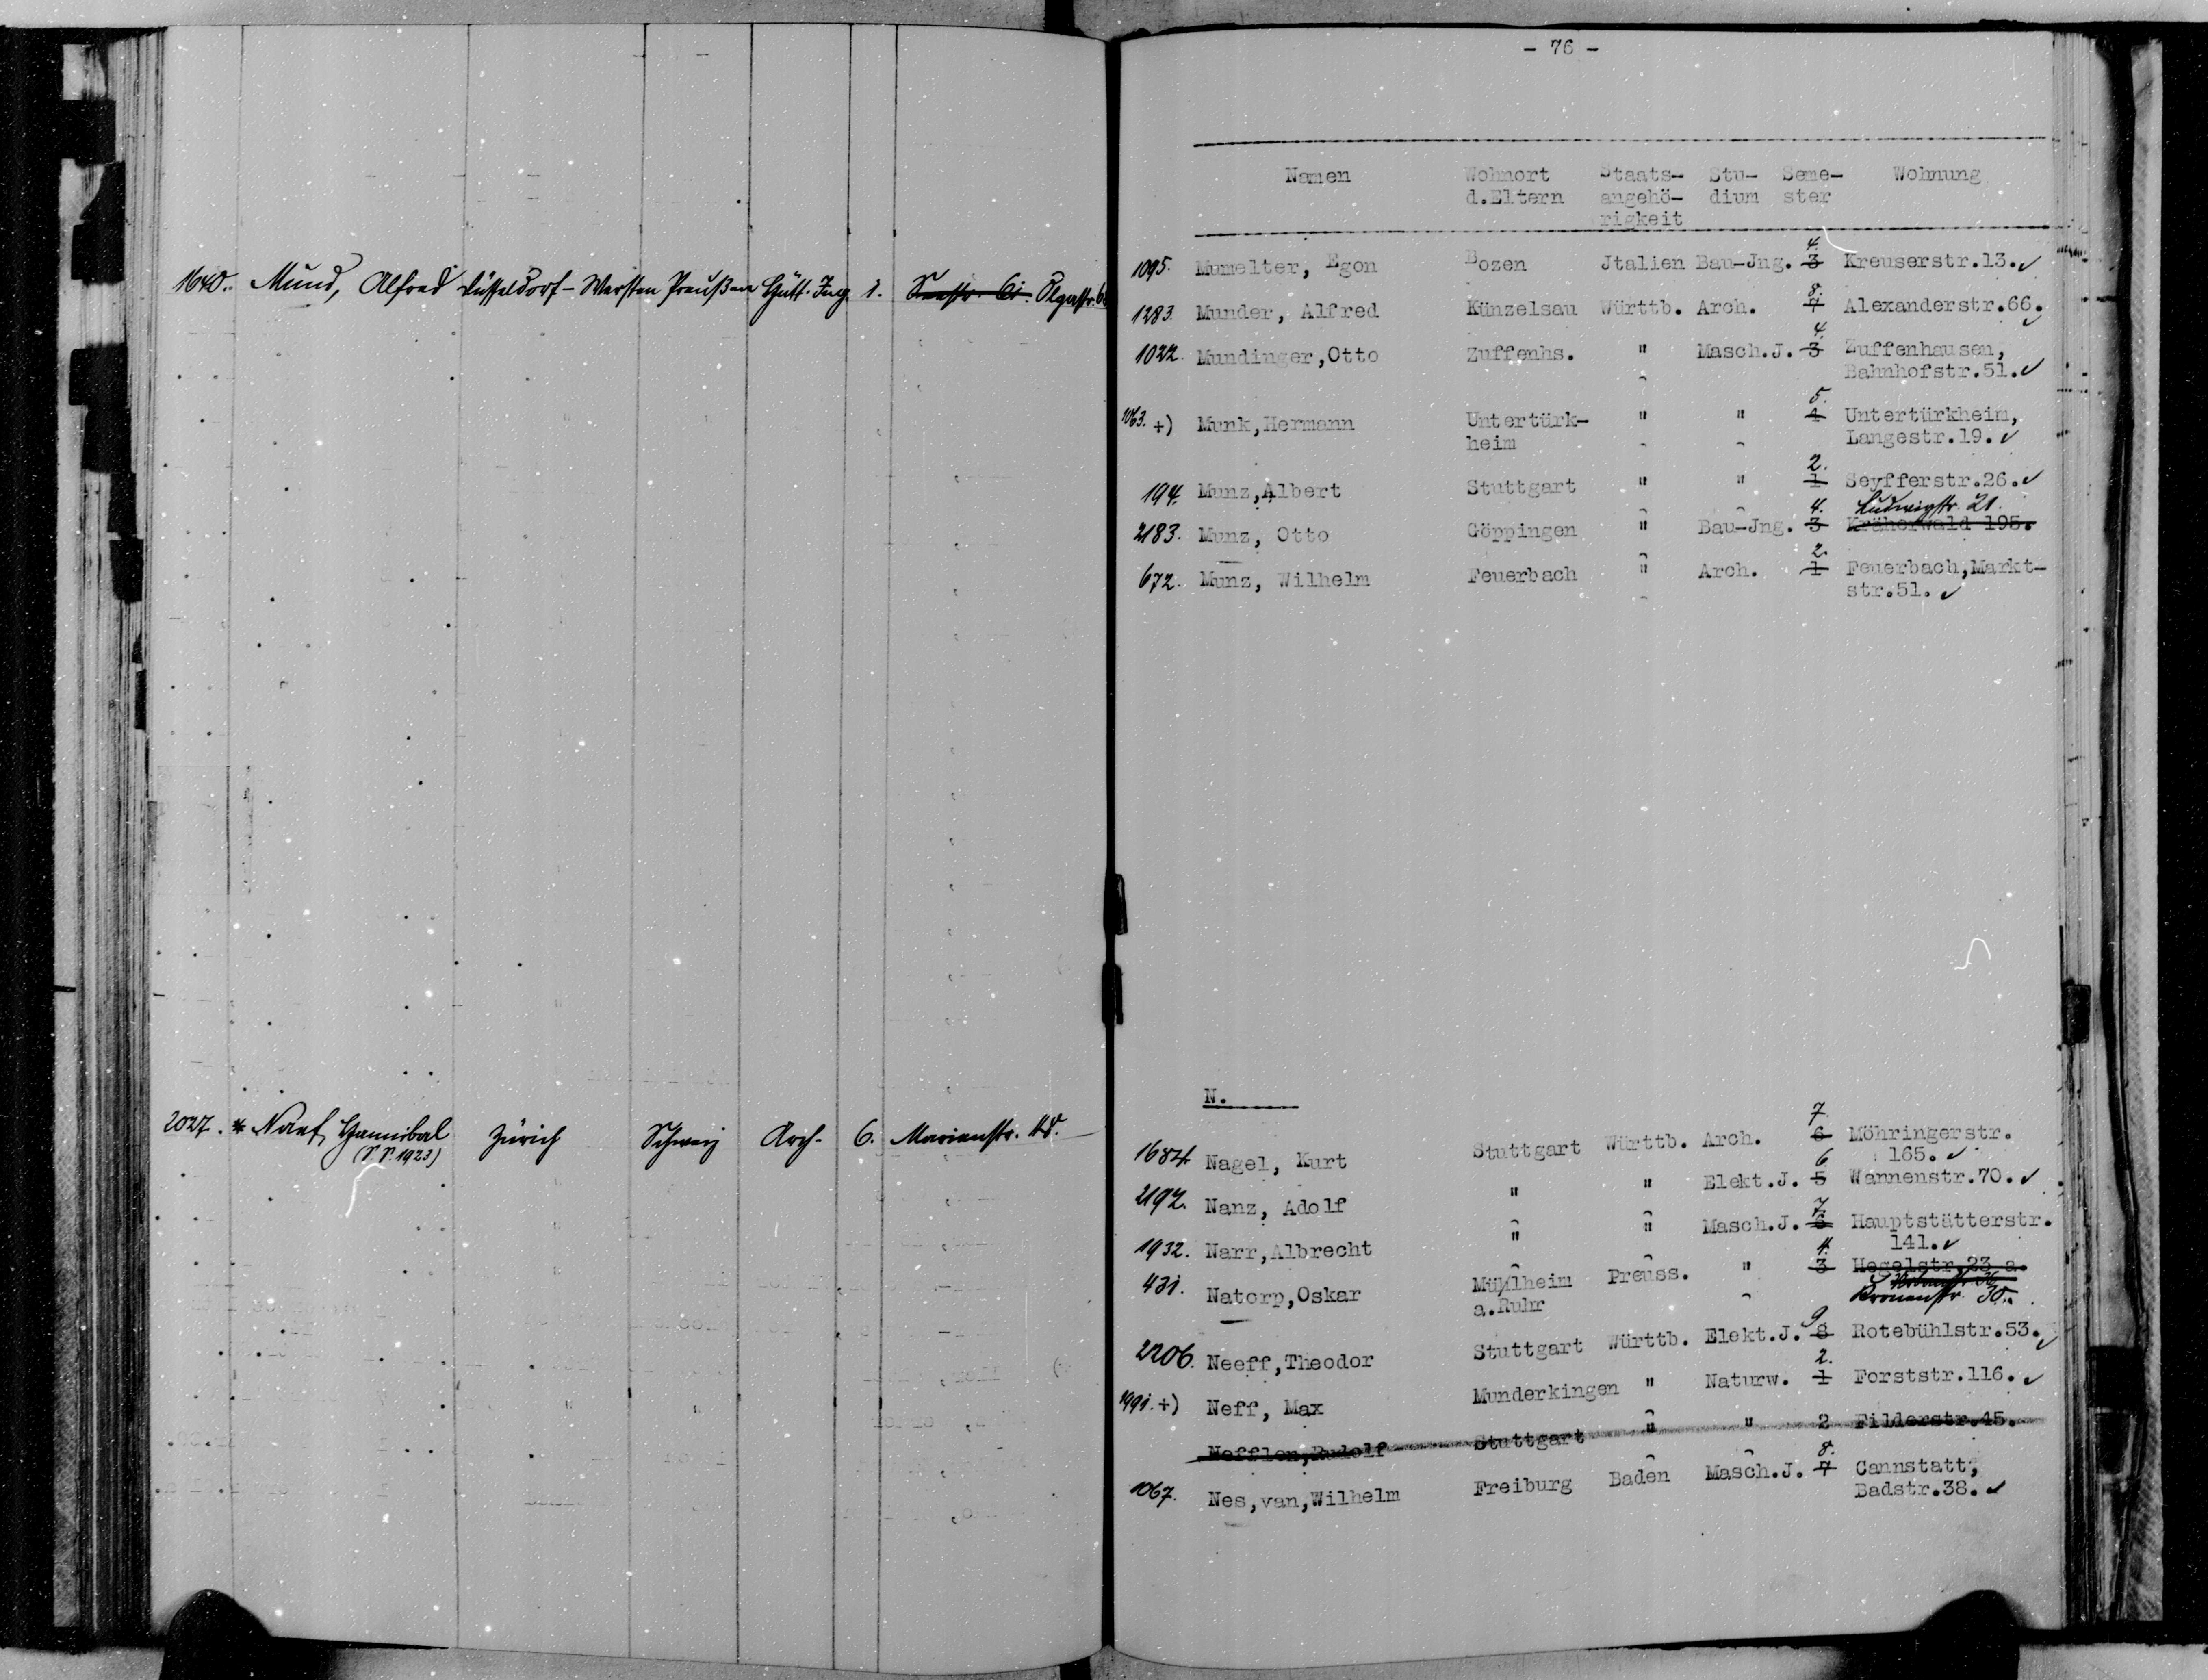 1640. Mund, Alfred Düsseldorf-Wersten Preußen Hütt. Ing. 1. Seestr. 61. Olgastr. 6
2027. * Naef, Hannibal Zürich Schweiz Arch. 6. Marienstr.
(S.S. 1923)
- 76 -
Namen Wohnort Staats- Stu- Seme- Wohnung
d.Eltern angehö- dium ster
rigkeit
1095. Mumelter, Egon Bozen Jtalien Bau-Jng. 3 4. Kreuserstr.13.
1283. Munder, Alfred Künzelsau Württb. Arch. 7 8. Alexanderstr.66.
1022. Mundinger,Otto Zuffenhs. " Masch.J. 3 4. Zuffenhausen,
Bahnhofstr.51.
1063. +) Munk,Hermann Untertürk- " " 4 5. Untertürkheim,
heim Langestr.19.
194. Munz,Albert Stuttgart " " 1 2. Seyfferstr.26.
Ludwigstr. 21.
2183. Munz, Otto Göppingen " Bau-Jng. 3 4. Kräherwald 195.
672. Munz, Wilhelm Feuerbach " Arch. 1 2. Feuerbach,Markt-
str.51.
N.
1684. Nagel, Kurt Stuttgart Württb. Arch. 6 7. Möhringerstr.
165.
2192. Nanz, Adolf " " Elekt.J. 5 6 Wannenstr.70.
1932. Narr,Albrecht " " Masch.J. 6 7. Hauptstätterstr.
141.
431. Natorp,Oskar Mühlheim Preuss. " 3 4. Hegelstr.23 a.
a.Ruhr Kronenstr. 30.
2206. Neeff,Theodor Stuttgart Württb. Elekt.J. 8 9 Rotebühlstr.53.
1991. +) Neff, Max Munderkingen " Naturw. 1 2. Forststr.116.
Nefflen,Rudolf Stuttgart " " 2 Filderstr.45.
1067. Nes,van,Wilhelm Freiburg Baden Masch.J. 7 8. Cannstatt,
Badstr.38.